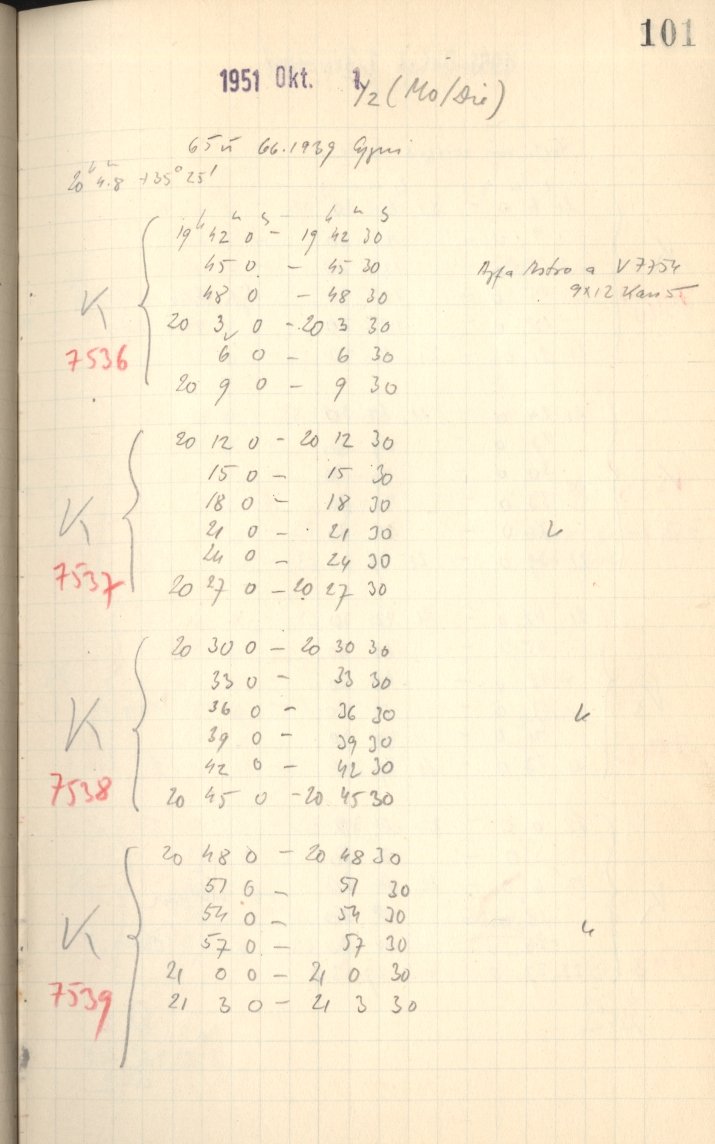 101
1951 Okt. 1/2 (Mo/Die)
65 u 66.1939 Cygni
20ʰ 4.8 +35° 25'
19ʰ 42ᵐ 0ˢ - 19ʰ 42ᵐ 30ˢ
45 0 - 45 30
Agfa Astro V 7754
48 0 - 48 30
9x12
K
20 3 0 - 20 3 30
7536
6 0 - 6 30
20 9 0 - 9 30
20 12 0 - 20 12 30
15 0 - 15 30
18 0 - 18 30
K
21 0 - 21 30
24 0 - 24 30
7537
20 27 0 - 20 27 30
20 30 0 - 20 30 30
33 0 - 33 30
36 0 - 36 30
K
39 0 - 39 30
42 0 - 42 30
7538
20 45 0 - 20 45 30
20 48 0 - 20 48 30
51 0 - 51 30
54 0 - 54 30
K
57 0 - 57 30
21 0 0 - 21 0 30
7539
21 3 0 - 21 3 30